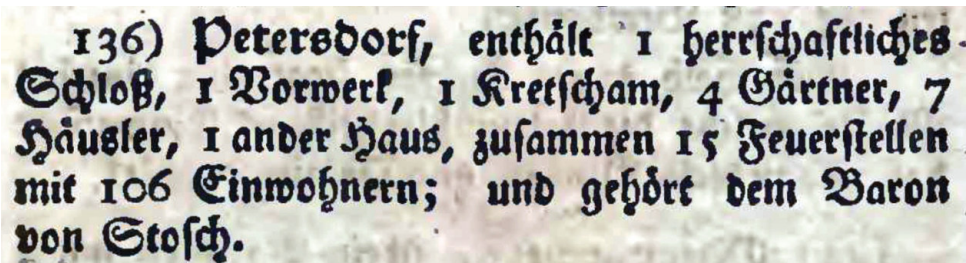 136) Petersdorf, enthält 1 herrſchaftliches
Schloß, 1 Vorwerk, 1 Kretſcham, 4 Gärtner, 7
Häusler, 1 ander Haus, zuſammen 15 Feuerſtellen
mit 106 Einwohnern; und gehört dem Baron
von Stoſch.